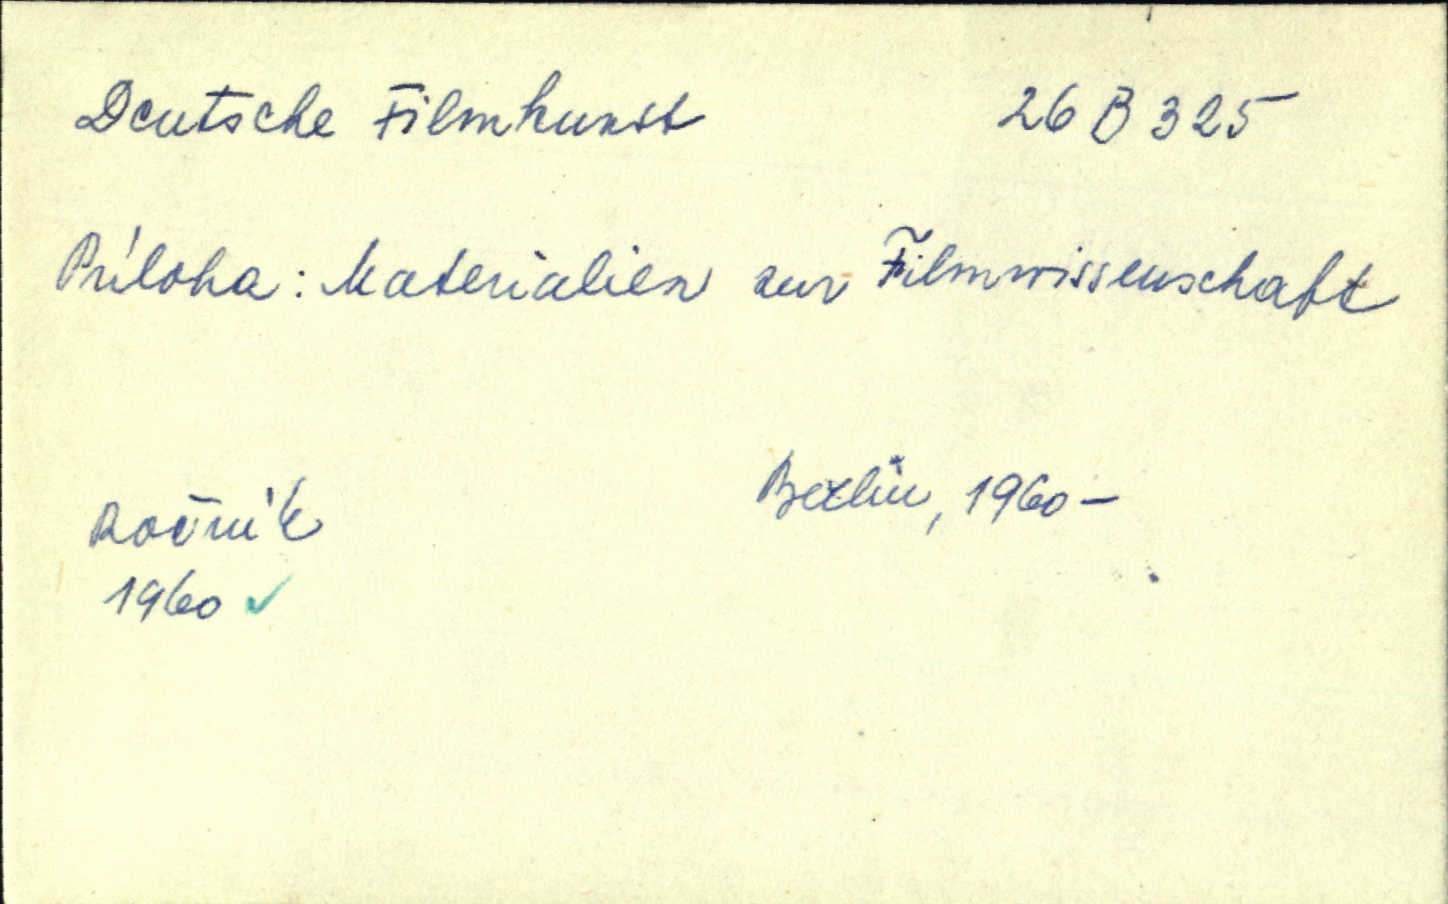 Deutsche Filmkunst 26 B 325
Príloha: Materialien zur Filmwissenschaft
Berlin, 1960-
Ročník
1960 ✓